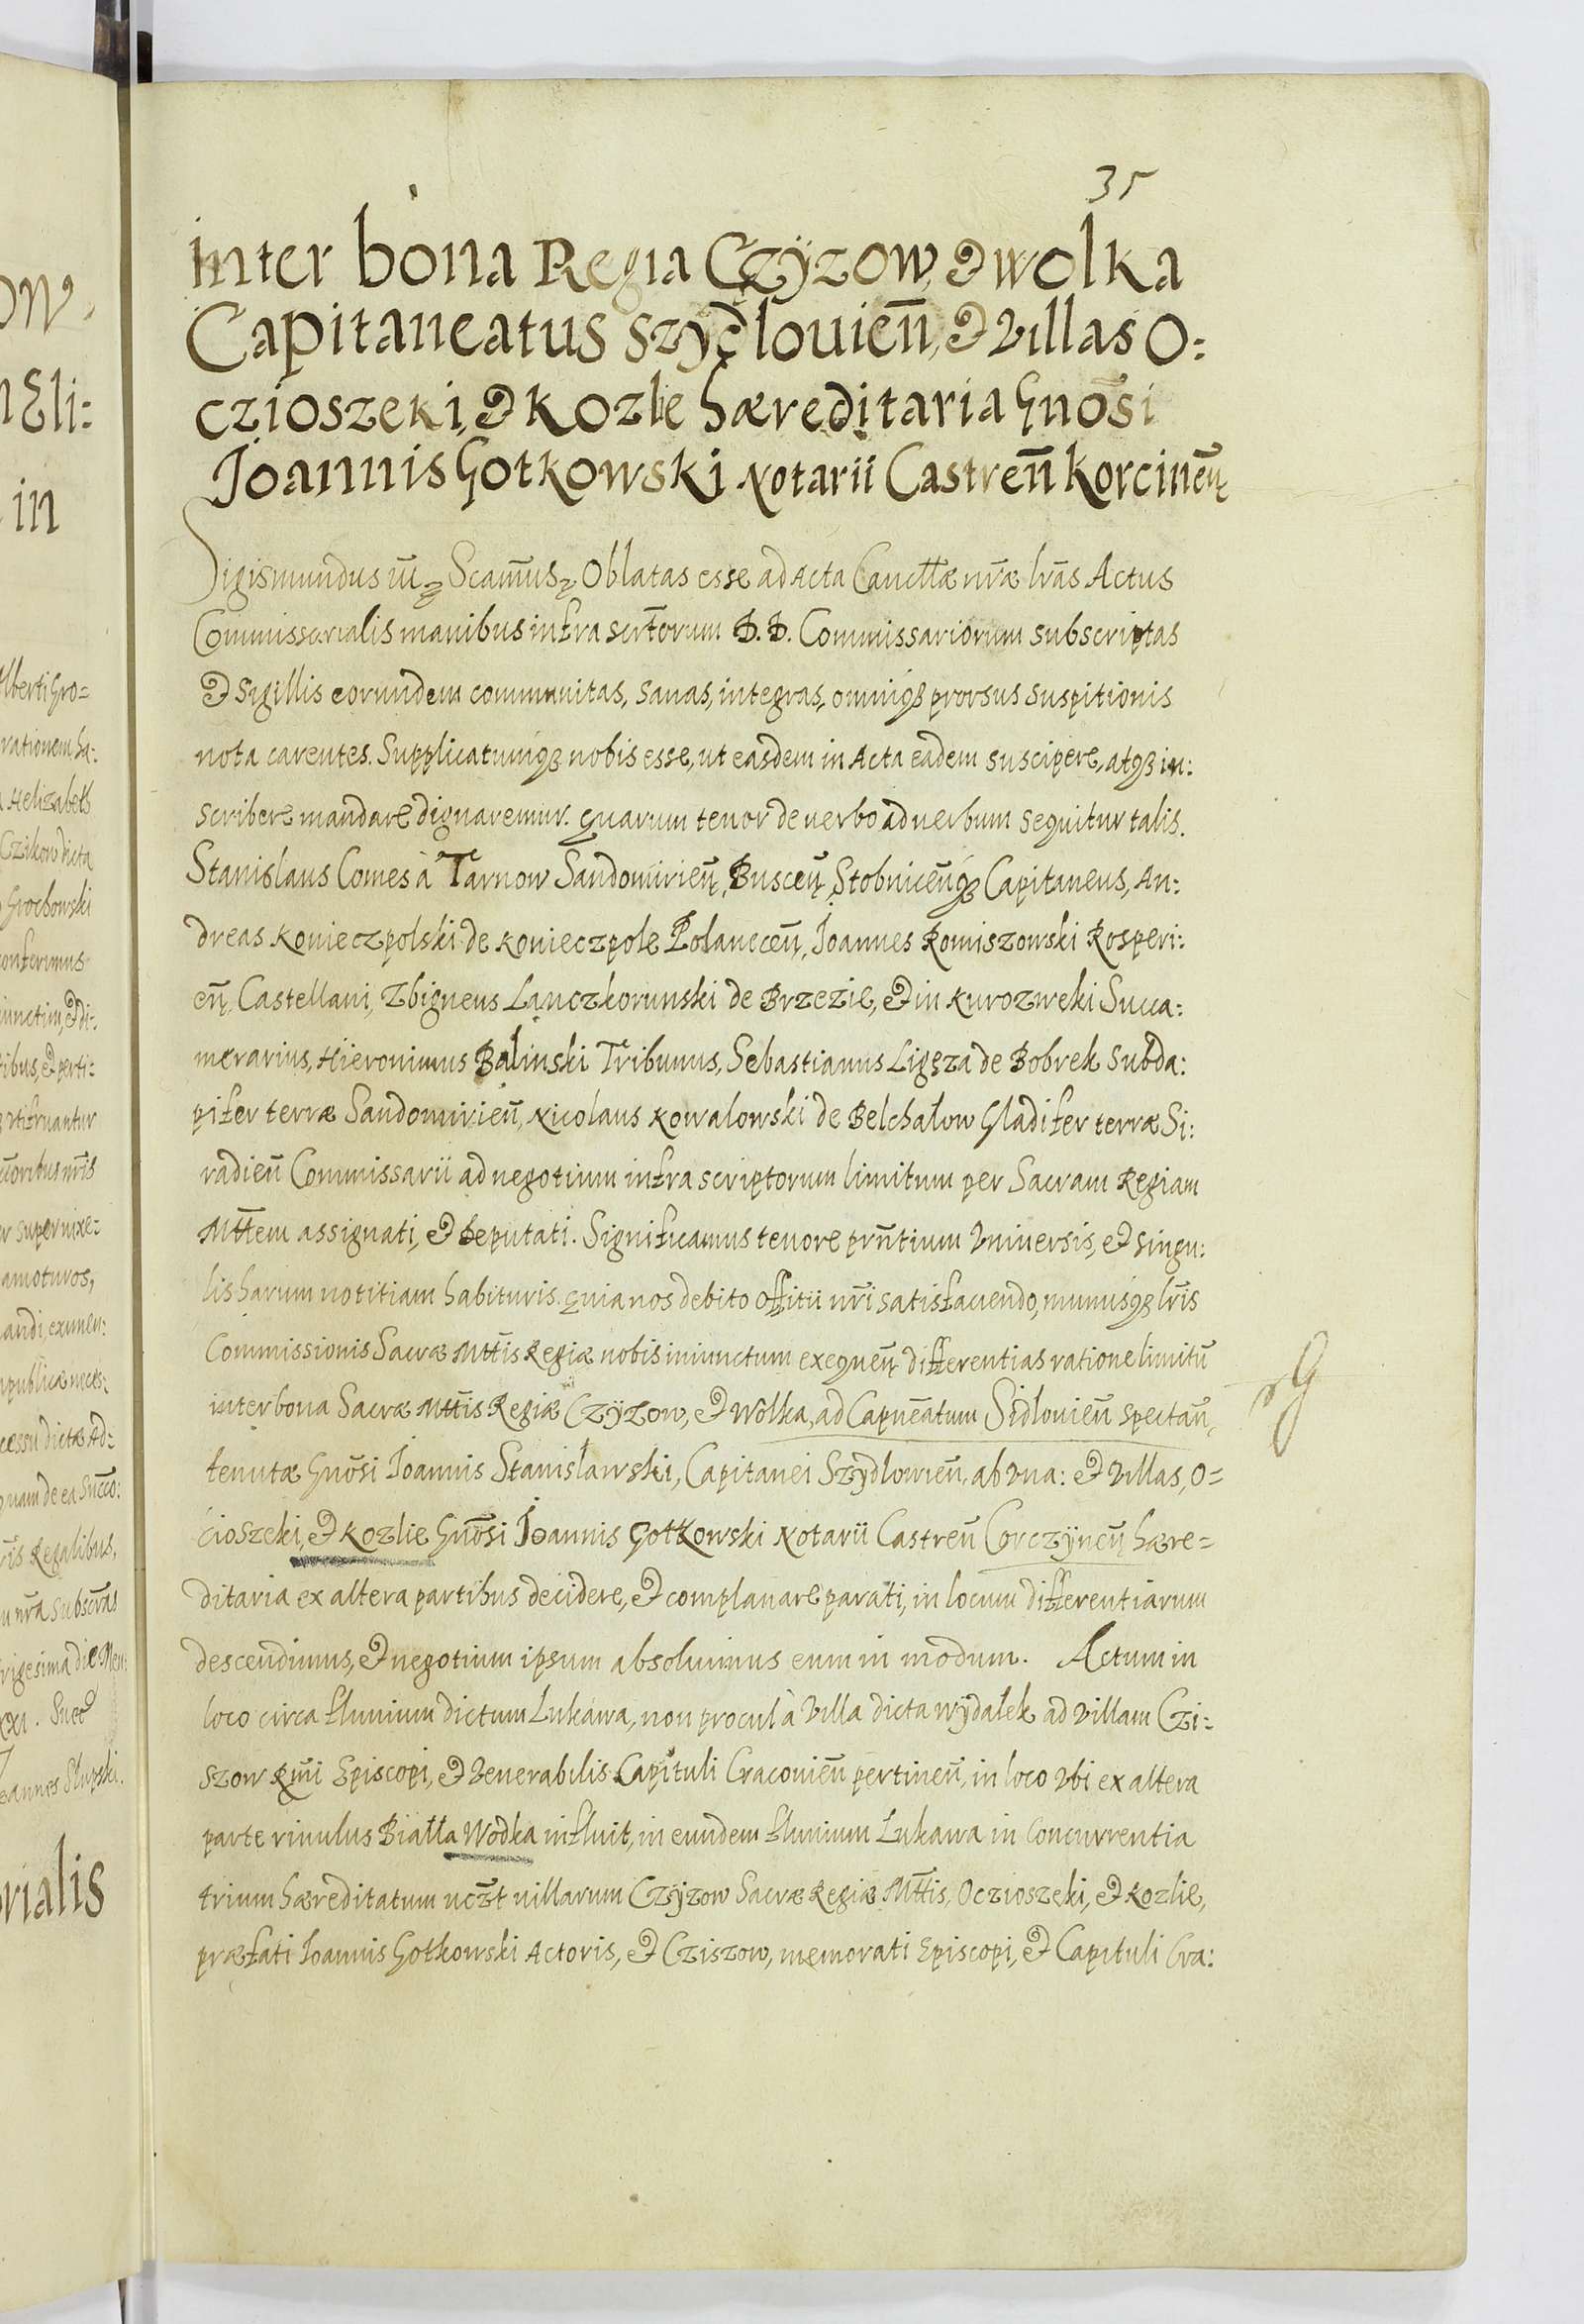 35
inter bona Regia Czÿzow, & wolka
Capitaneatus Szydlouien̄, & villas O:
czioszeki, & Kozle hæreditaria Gnōsi
Joannis Gotkowski Notarii Castren̄ Korcinen̄
Sigismundus Scam̄us Oblatas esse ad Acta Cancllæ nr̄æ lrās Actus
Commissarialis manibus infra scrtorum D. D. Commissariorum subscriptas
& sigillis eorundem communitas, sanas, integras, omniq3 prorsus suspitionis
nota carentes. Supplicatumq3 nobis esse, ut easdem in Acta eadem suscipere, atq3 in:
scribere mandare dignaremur. Quarum tenor de uerbo ad uerbum sequitur talis.
Stanislaus Comes à Tarnow Sandomirien̄, Buscen̄, Stobnicen̄q3 Capitaneus, An:
dreas Konieczpolski de Konieczpole Polanecen̄, Joannes Komiszowski Rosperi:
en̄, Castellani, Zbigneus Lanczkorunski de Brzezie, & in Kurozweki Succa:
merarius, Hieronimus Balinski Tribunus, Sebastianus Ligęza de Bobrek Subda:
pifer terræ Sandomirien̄, Nicolaus Kowalowski de Belchalow Gladifer terræ Si:
radien̄ Commissarii ad negotium infra scriptorum limitum per Sacram Regiam
Mttem assignati, & deputati. Significamus tenore prn̄tium Vniuersis, & singu:
lis harum notitiam habituris. quia nos debito offitii nr̄i satisfaciendo, munusq3 lrīs
Commissionis Sacræ Mttis Regiæ nobis iniunctum exequen̄ differentias ratione limitū
inter bona Sacræ Mttis Regiæ Czÿzow, & Wolka, ad Capn̄eatum Sidlouien̄ spectan̄,
tenutæ Gnōsi Joannis Stanislawski, Capitanei Szydlowien̄, ab vna: & villas, O=
cioszeki, & Kozlie Gnōsi Joannis Gotkowski Notarii Castren̄ Corczÿnen̄ hære=
ditaria ex altera partibus decidere, & complanare parati, in locum differentiarum
descendimus, & negotium ipsum absoluimus eum in modum. Actum in
loco circa fluuium dictum Lukawa, non procul à villa dicta wydałek ad villam Czi:
szow Rmi Episcopi, & Venerabilis Capituli Cracouien̄ pertinen̄, in loco vbi ex altera
parte riuulus Białła Wodka influit, in eundem fluuium Łukawa in concurrentia
trium hæreditatum uczt uillarum Czÿzow Sacræ Regiæ Mttis, Oczioszeki, & Kozlie,
præfati Ioannis Gotkowski Actoris, & Cziszow, memorati Episcopi, & Capituli Cra: